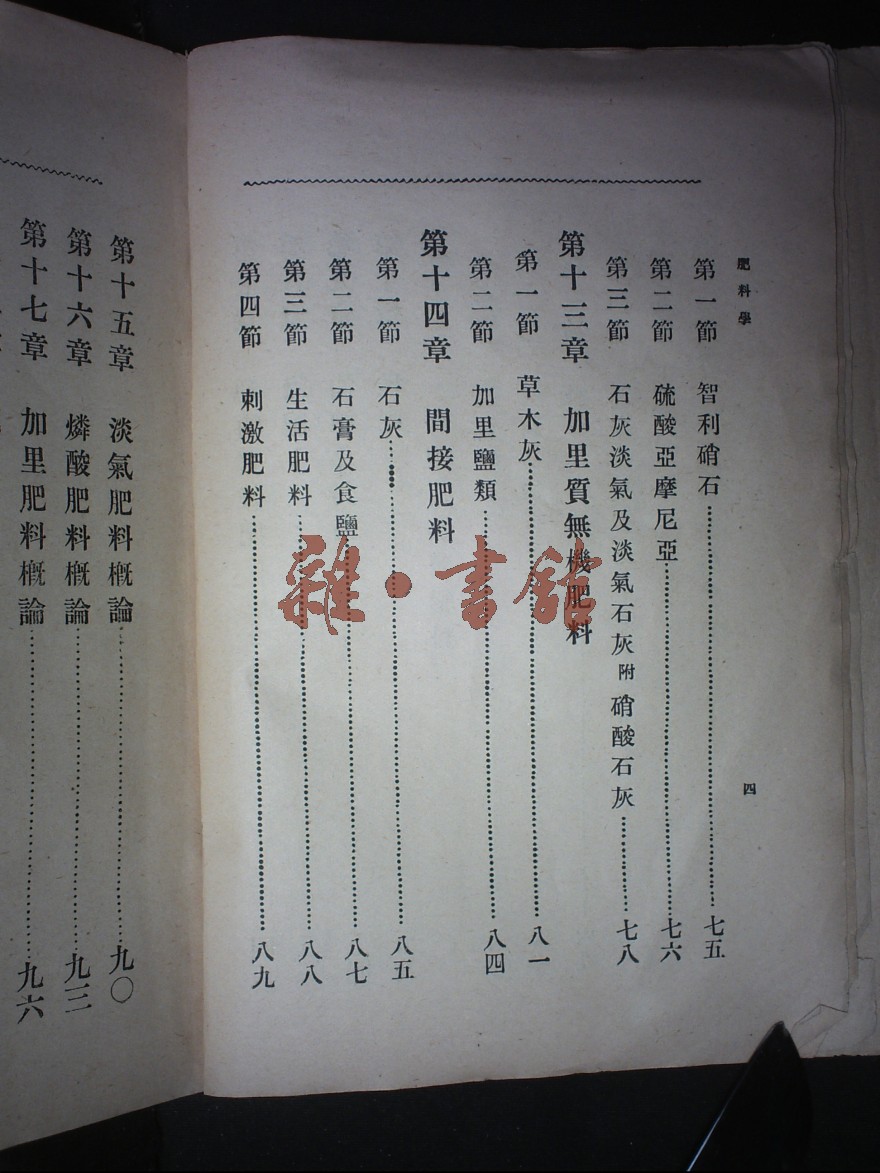 肥料學
四
第一節 智利硝石……七五
第二節 硫酸亞摩尼亞……七六
第三節 石灰淡氣及淡氣石灰附硝酸石灰……七八
第十三章 加里質無機肥料
第一節 草木灰……八一
第二節 加里鹽類……八四
第十四章 間接肥料
第一節 石灰……八五
第二節 石膏及食鹽……八七
第三節 生活肥料……八八
第四節 刺激肥料……八九
第十五章 淡氣肥料概論……九〇
第十六章 燐酸肥料概論……九三
第十七章 加里肥料概論……九六
雜·書館